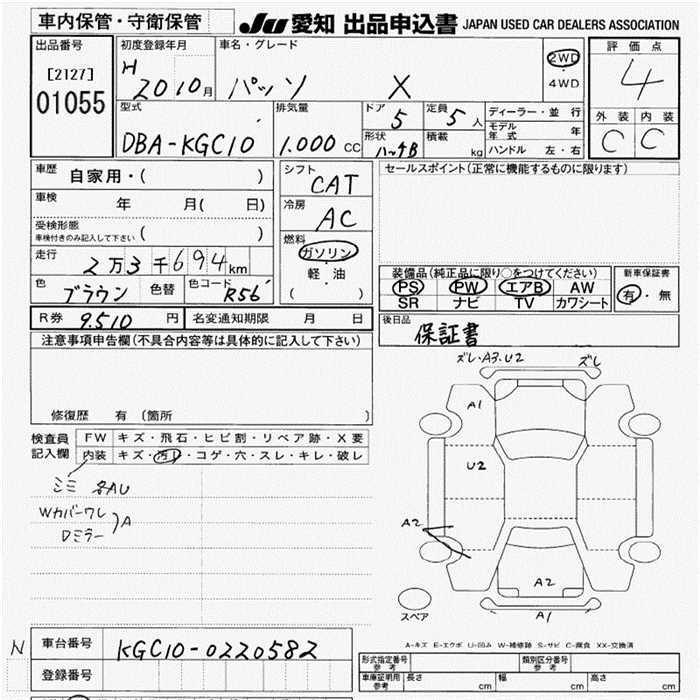 車内保管・守衛保管
JU 愛知 出品申込書 JAPAN USED CAR DEALERS ASSOCIATION
出品番号
[2127]
01055
初度登録年月
H 20 10月
車名・グレード
パッソ X
2WD
・
4WD
評価点
4
外装 内装
C C
型式
DBA-KGC10
排気量
1.000 CC
ドア 5
定員 5人
形状 ハッチB
積載 kg
ディーラー・並行
モデル年式 年
ハンドル 左・右
車歴 自家用・( )
車検 年 月( 日)
受検形態
車検付きのみ記入して下さい ( )
走行 2万3千694km
色 ブラウン 色替 色コード R56
シフト CAT
冷房 AC
燃料
ガソリン
軽・油
( )
セールスポイント(正常に機能するものに限ります)
装備品(純正品に限り○をつけてください)
PS PW エアB AW
SR ナビ TV カワシート
新車保証書
有・無
R券 9.510円 名変通知期限 月 日
後日品 保証書
注意事項申告欄(不具合内容等は具体的に記入して下さい)
修復歴 有 (箇所 )
検査員記入欄
FW キズ・飛石・ヒビ割・リペア跡・X要
内装 キズ・汚レ・コゲ・穴・スレ・キレ・破レ
Wカバーワレ
Dミラー A
ズレ・A3・U2 ズレ
A1
U2
A2
A2
A1
スペア
A-キズ E-エクボ U-凹み W-補修跡 S-サビ C-腐食 XX-交換済
N
車台番号 KGC10-0220582
登録番号
形式指定番号 参考
類別区分番号 参考
車庫証明用 参考 長さ cm 幅 cm 高さ cm